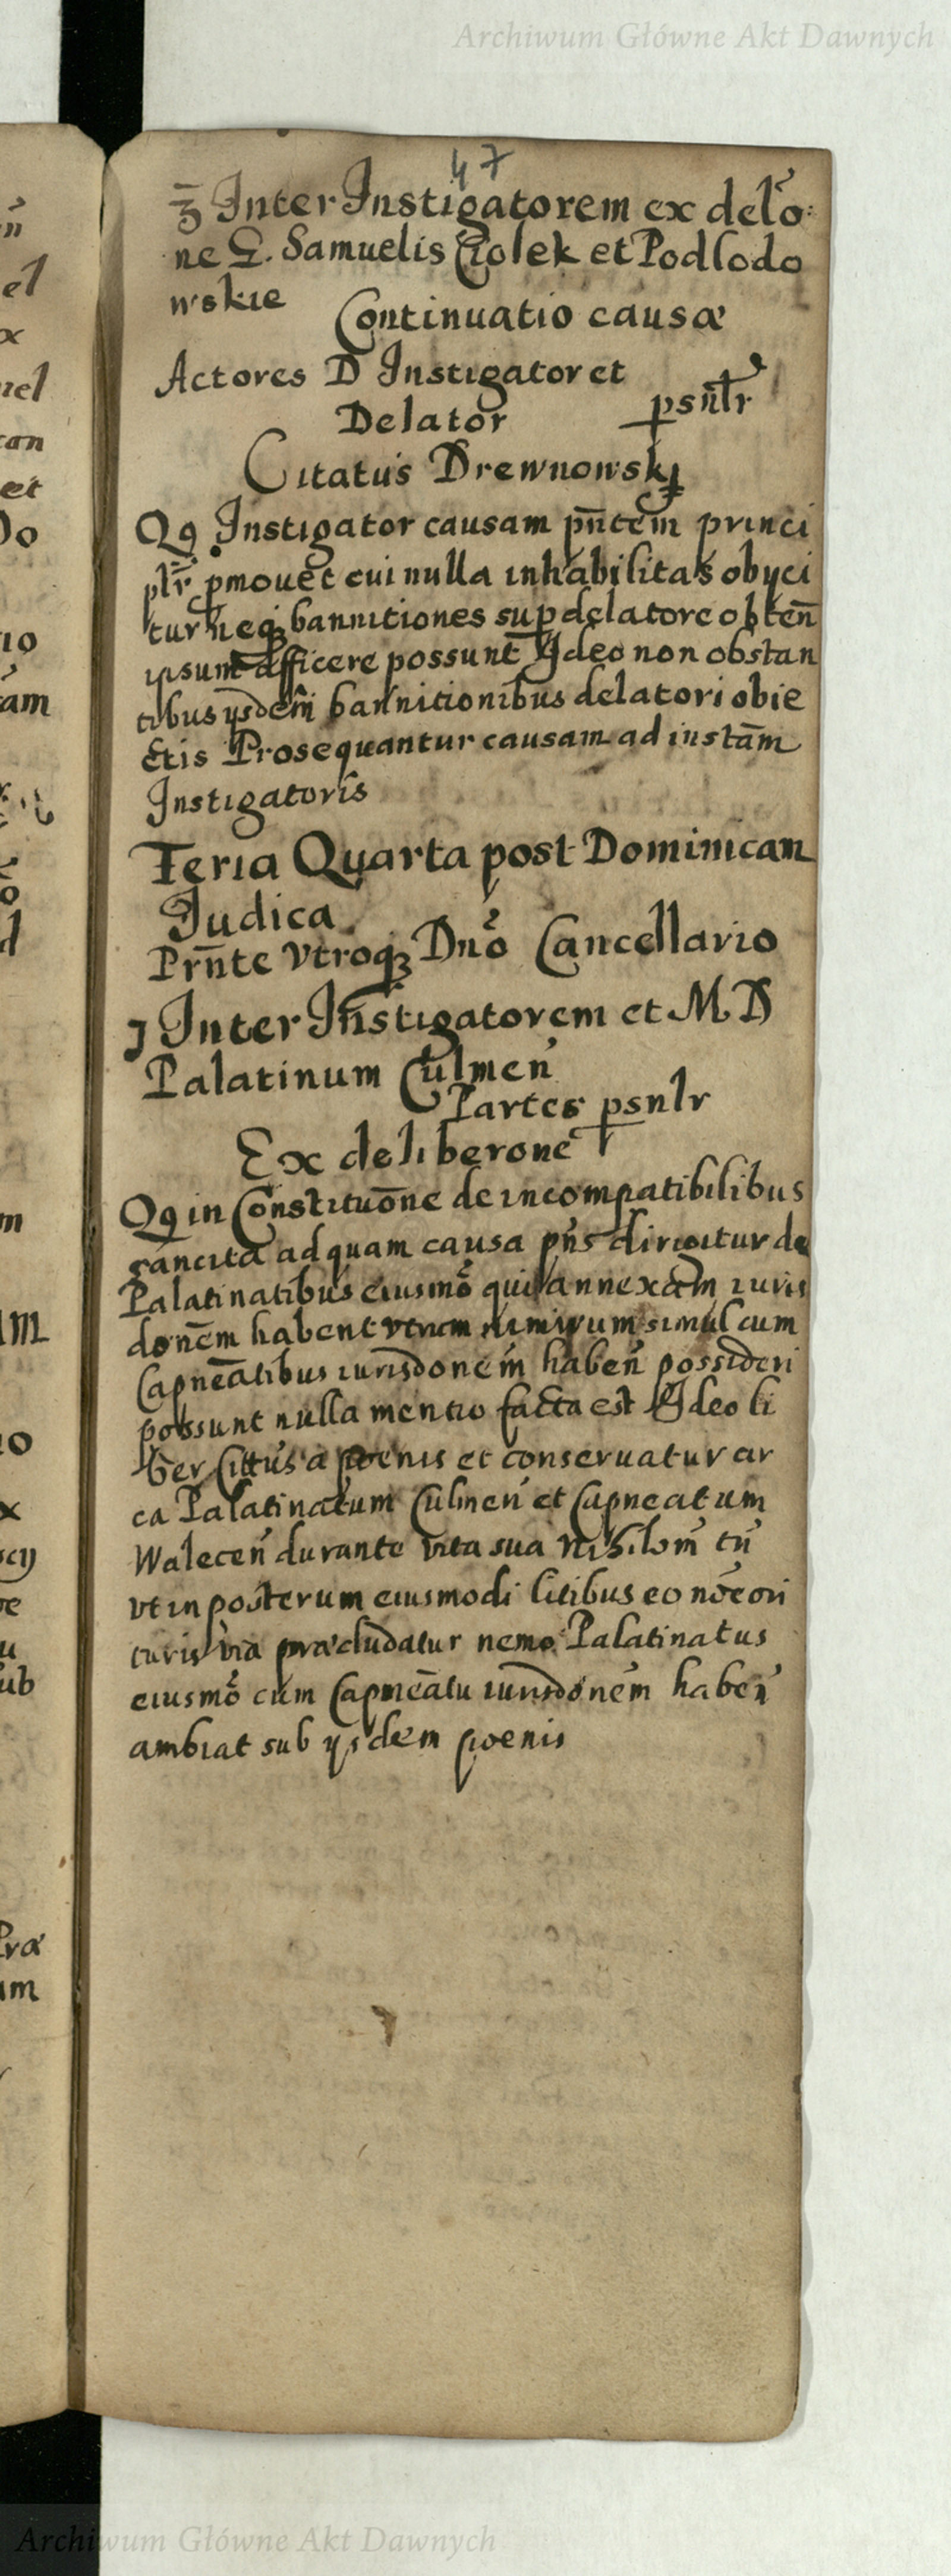 Archiwum Główne Akt Dawnych
47
3 Inter Instigatorem ex delo:
ne G. Samuelis Ciolek et Podlodo
wskie
Continuatio causæ
Actores D Instigator et
Delator psnlr
Citatus Drewnowskj
Qq Instigator causam pn̄tem princi
plr̄ pmouet cui nulla inhabilitas obyci
tur neq bannitiones sup delatore obten̄
ipsum afficere possunt Ideo non obstan
tibus ysdem bannitionibus delatori obie
ctis Prosequantur causam ad instām
Instigatoris
Feria Quarta post Dominicam
Iudica
Prn̄te Vtroq Dnō Cancellario
1 Inter Instigatorem et M D
Palatinum Culmen
Partes psnlr
Ex deliberone
Qq in Constituōne de incompatibilibus
sancita ad quam causa pn̄s dirigitur de
Palatinatibus eiusmō qui annexam iuris
donēm habent utrum nimirum simul cum
Capneātibus iurisdonem haben possideri
possunt nulla mentio facta est Ideo li
ber Cittus a poenis et conseruatur cir
ca Palatinatum Culmen et Capneatum
Walecen durante vita sua Nihilom tn̄
vt in posterum eiusmodi litibus eo noe ori
turis via præcludatur nemo Palatinatus
eiusmō cum Capneātu iurisdonēm haben
ambiat sub ysdem poenis
Archiwum Główne Akt Dawnych